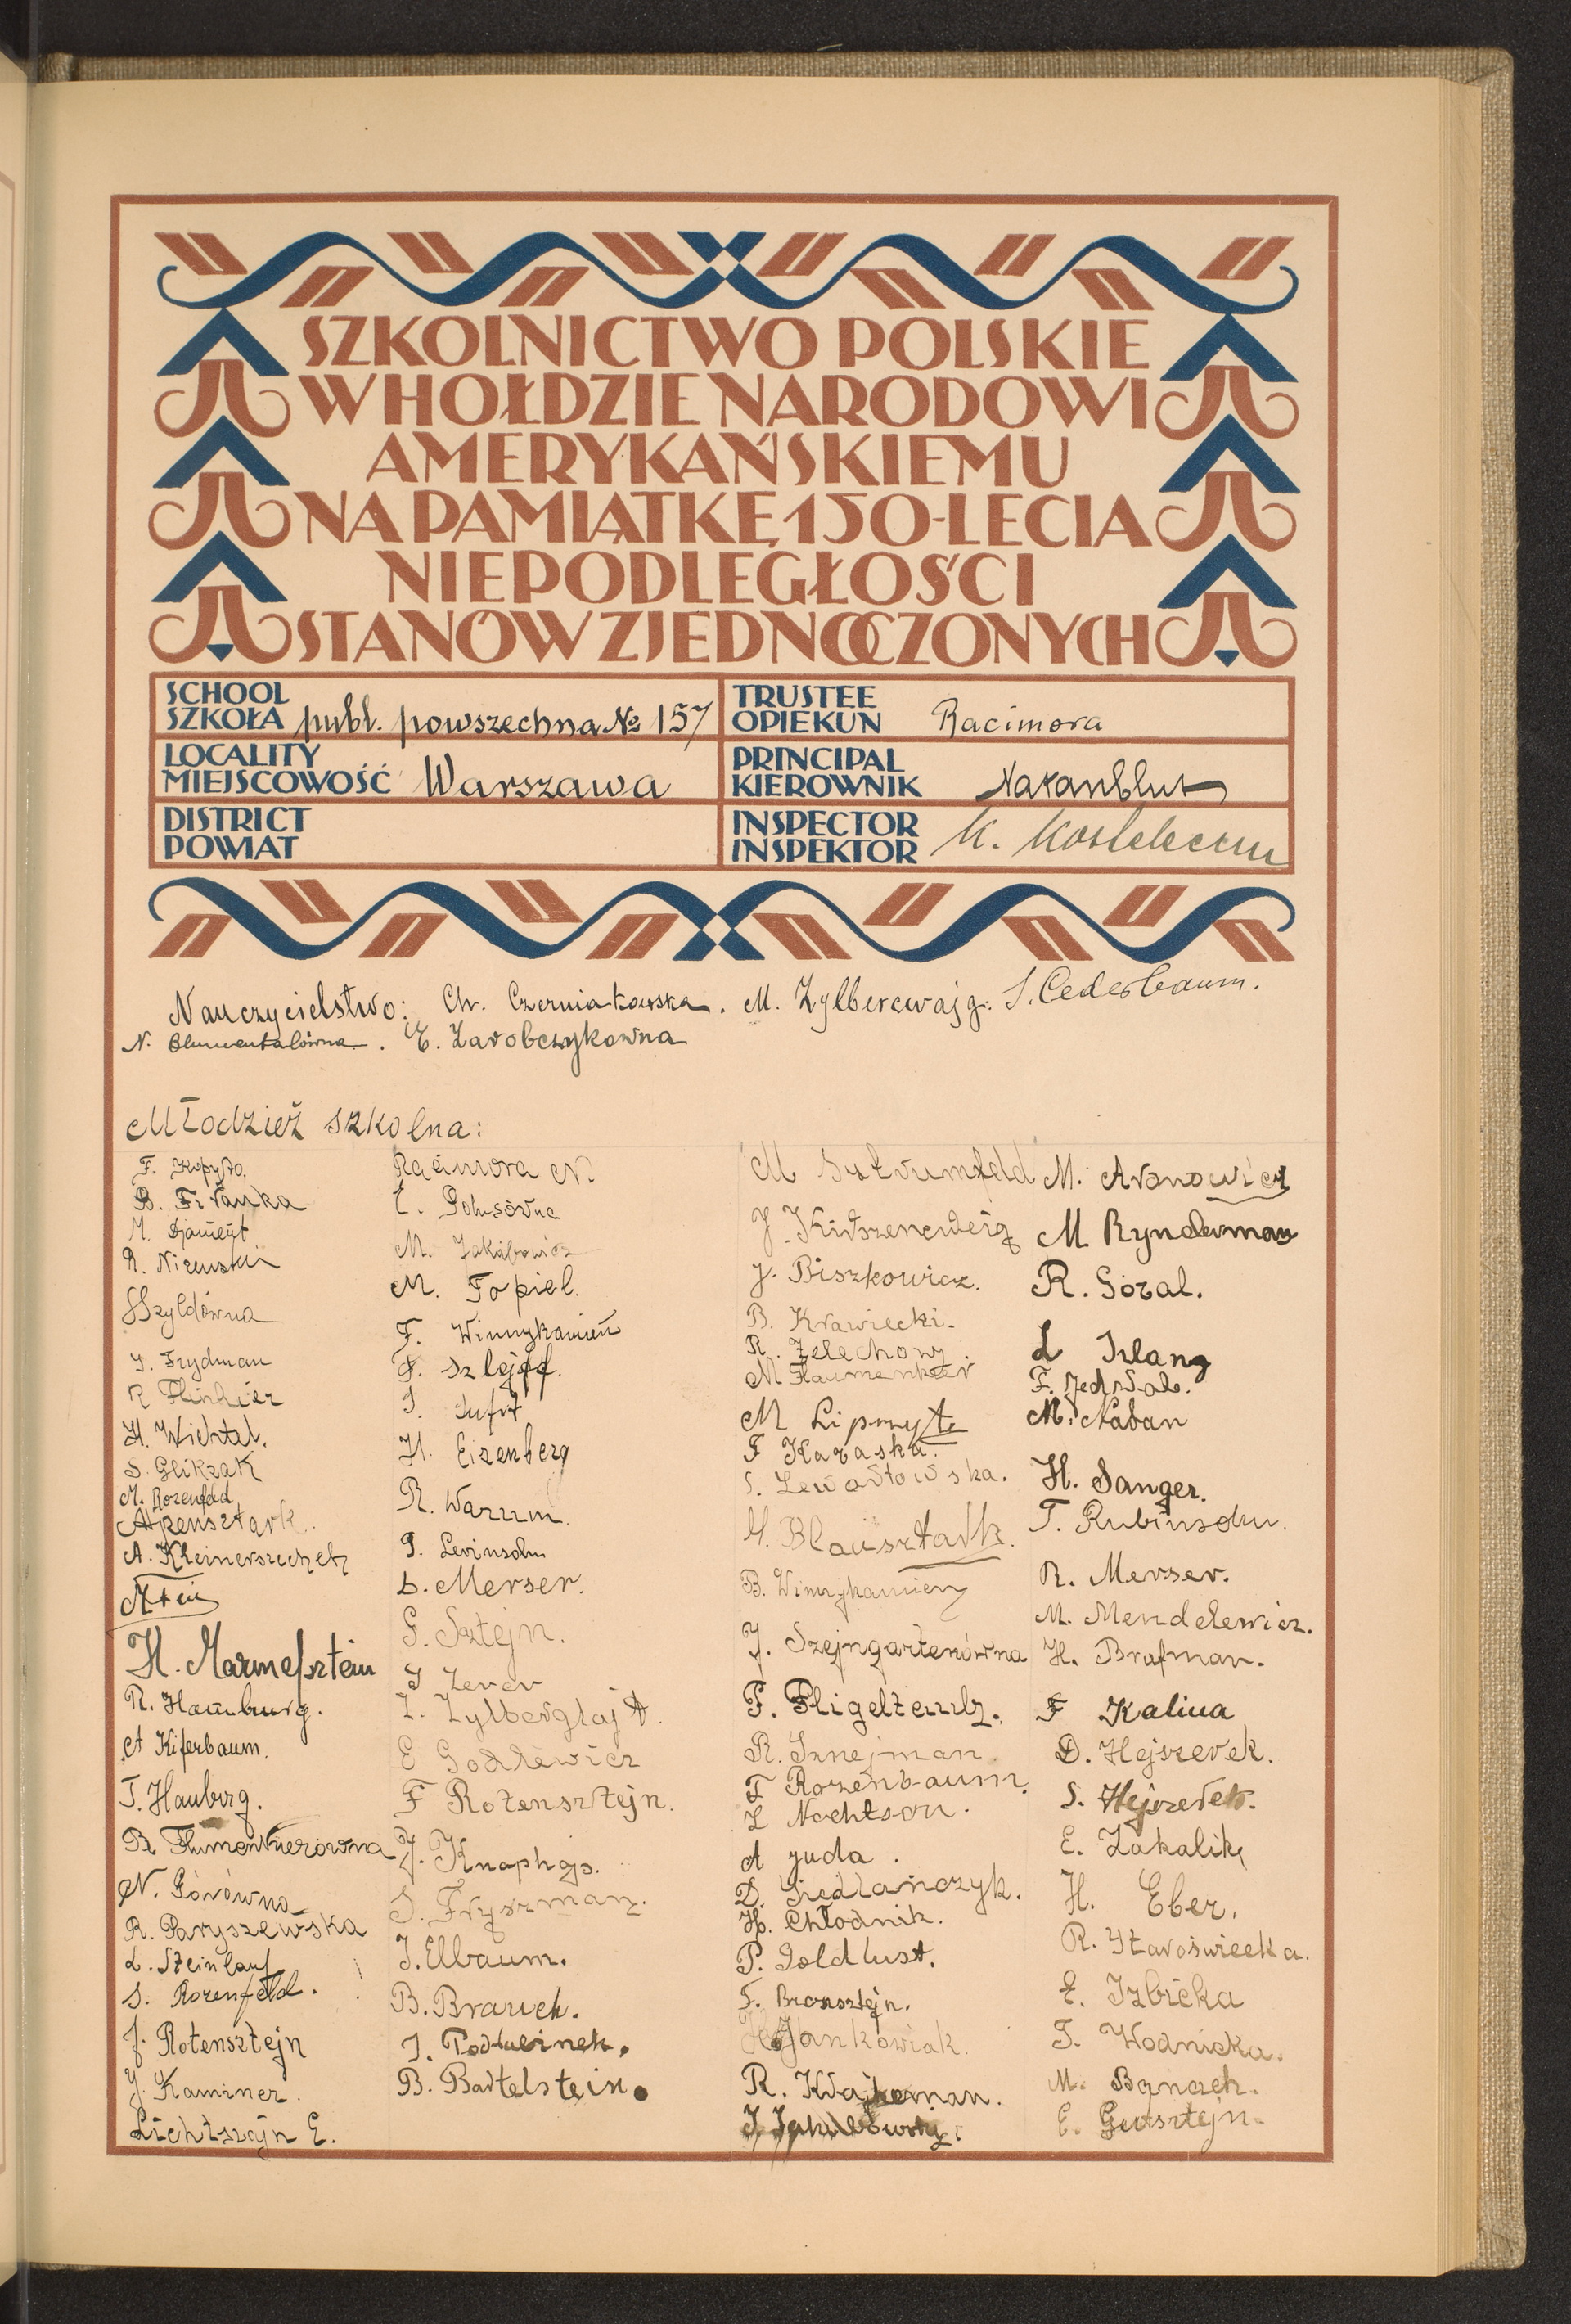 SZKOLNICTWO POLSKIE
W HOŁDZIE NARODOWI
AMERYKAŃSKIEMU
NA PAMIĄTKĘ 150-LECIA
NIEPODLEGŁOŚCI
STANÓW ZJEDNOCZONYCH
SCHOOL
SZKOŁA publ. powszechna № 157
TRUSTEE
OPIEKUN Racimora
LOCALITY
MIEJSCOWOŚĆ Warszawa
PRINCIPAL
KIEROWNIK Natanblut
DISTRICT
POWIAT
INSPECTOR
INSPEKTOR K.
Nauczycielstwo: Ch. Czerniakowska. M. Zylbercwajg. S. Cederbaum.
N. Blumentalówna. E. Zarobczykowna
Młodzież szkolna:
F. Kopyto.
B. Firanka
M. Djament
R. Nirenski
Szyldówna
S. Frydman
R
H. Wichtel.
S. Glikzak
M. Rozenfeld
Alpensztark.
A. Kleinerszechet
H. Marmelsztein
R. Hamburg.
A Kiferbaum.
T. Hauberg.
R Flumenkierówna
N. Górówna
R. Paryszewska
L. Szteinlauf
S. Rozenfeld.
J. Rotensztejn
J. Kaminer.
Lichtszejn E.
Racimora N.
E.
M. Jakubowicz
M. Fopiel.
F. Winnykamień
F. Szlejff.
S. Sufit
H. Eizenberg
R. Warum.
P. Levinsohn
B. Merser.
G. Sztejn.
I Zerer
I. Zylberglajt.
E Godlewicz
F Rotensztejn.
J. Knaphejs.
S. Fryszman.
J. Elbaum.
B. Brauch.
J. Podrabinek.
B. Bartelstein.
M
J. Kirszencweig
J. Biszkowicz.
B. Krawiecki.
R. Zelechony.
M Flaumenkier
M Lipszyt
F Karaska.
S. Lewartowska.
H. Blausztark.
B. Winnykamień
J. Szejngartenówna
P. Fligeltaub.
R. Sznejman
T Rozenbaum.
L Nachtson.
A juda.
D. Siedlańczyk.
H. Chłodnik.
P. Goldlust.
T. Bronsztejn.
H. Jankowiak.
R. Krajkeman.
J. Jakubowicz.
M. Aronowicz
M. Rynderman
R. Goral.
L Irlang
F. Jedwab.
M. Naban
H. Sanger.
T. Rubinsohn.
R. Merser.
M. Mendelewicz.
H. Brafman.
F Kalina
D. Hejszerek.
S. Hejszerek.
E. Zakalik
H. Eber.
R. Staroświecka.
E. Izbicka
T. Wodnicka.
M. Banach.
E. Gutsztejn.